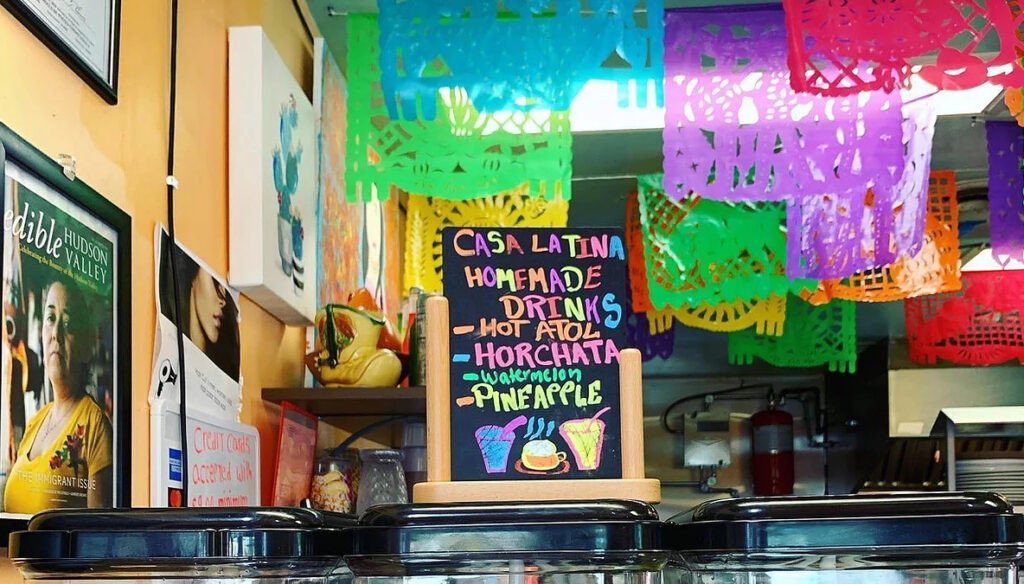 edible HUDSON
VALLEY
Celebrating the Bounty of the Hudson Valley
THE IMMIGRANT ISSUE
CASA LATINA
HOMEMADE
DRINKS
- HOT ATOL
- HORCHATA
- Watermelon
- PINEAPPLE
Credit Cards
accepted with
minimum